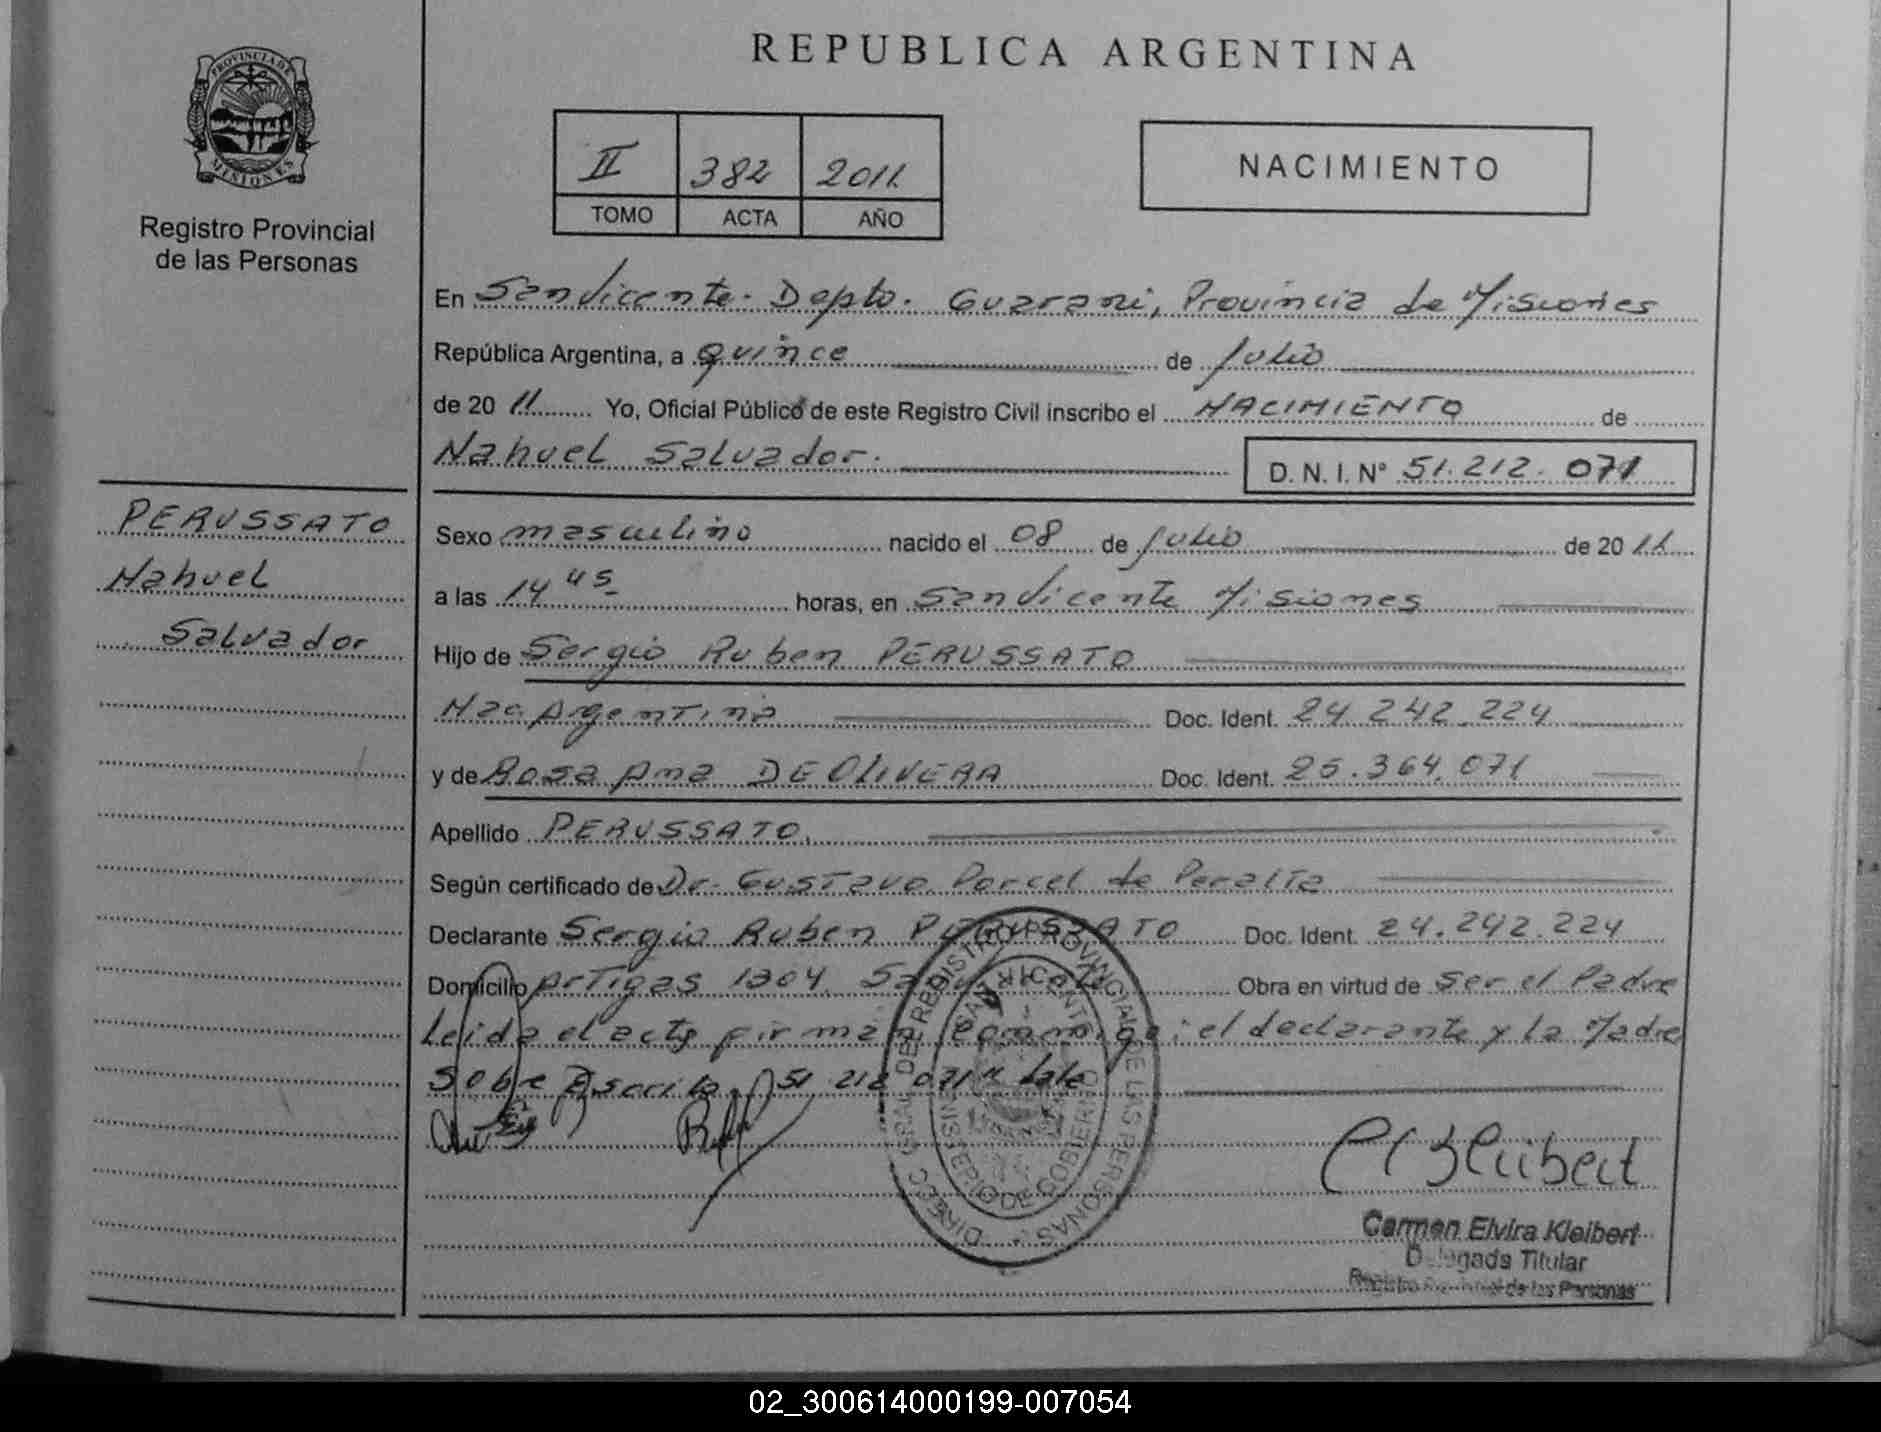 PROVINCIA DE
MISIONES
Registro Provincial
de las Personas
REPUBLICA ARGENTINA
II 382 2011.
TOMO ACTA AÑO
NACIMIENTO
En San Vicente. Depto. Guarani, Provincia de Misiones
República Argentina, a quince de Julio
de 20 11 Yo, Oficial Público de este Registro Civil inscribo el NACIMIENTO de
Nahuel Salvador. D. N. I. Nº 51.212.071
PERUSSATO
Nahuel
Salvador
Sexo masculino nacido el 08 de Julio de 20 11
a las 14 45 horas, en San Vicente Misiones
Hijo de Sergio Ruben PERUSSATO
Nac. Argentina Doc. Ident. 24.242.224
y de Rosa Ana DE OLIVERA Doc. Ident. 25.364.071
Apellido PERUSSATO.
Según certificado de Dr. Gustavo Porcel de Peralta
Declarante Sergio Ruben PERUSSATO Doc. Ident. 24.242.224
Domicilio Artigas 1304 San Vicente Obra en virtud de ser el Padre
Leida el acta firman conmigo: el declarante y la Madre
Sobre Escrito 51 212 071 Vale
DIRECC. GRAL. DEL REGISTRO PROVINCIAL DE LAS PERSONAS
SAN VICENTE
MINISTERIO DE GOBIERNO
C E Kleibert
Carmen Elvira Kleibert
Delegada Titular
Registro Provincial de las Personas
02_300614000199-007054